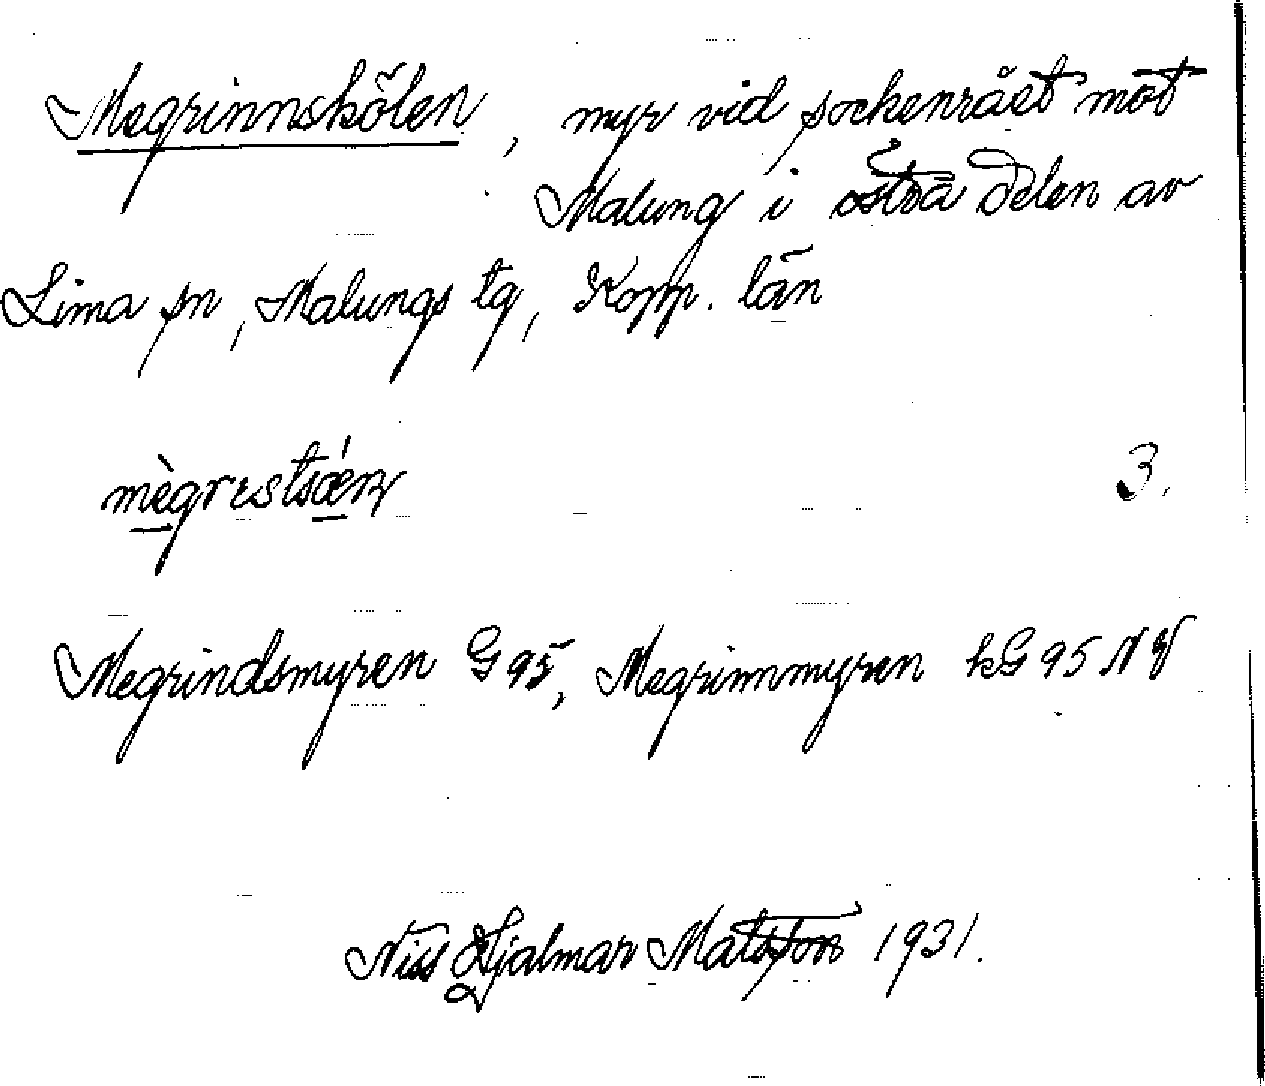 Megrinnskölen, myr vid sockenrået mot
Malung i östra delen av
Lima sn, Malungs tg, Kopp. län
3.
Megrindsmyren G 95, Megrinnmyren kG 95 NV
Niss Hjalmar Matsson 1931.